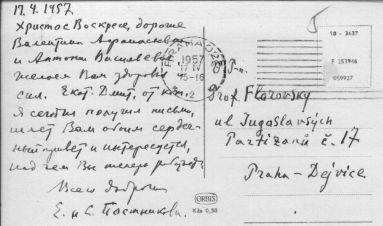 17.4.1957
Христос Воскресе, дорогие
Валентина Афанасьевна
и Антоний Васильевич
желаем Вам здоровья
сил. Екат. Дмит. от ком.
Я сегодня получил письмо,
шлет Вам обоим сердеч-
ный привет и интересуется,
над чем Вы теперь работаете.
Всего доброго
Е. и С. Постниковы.
PRAHA 025
1957
17 IV
15-16
2
10 - 3437
F 253946
059927
P. n.
Prof. Florovsky
ul Jugoslavských
Partizánů č. 17
Praha - Dejvice
ORBIS
Kčs 0,50